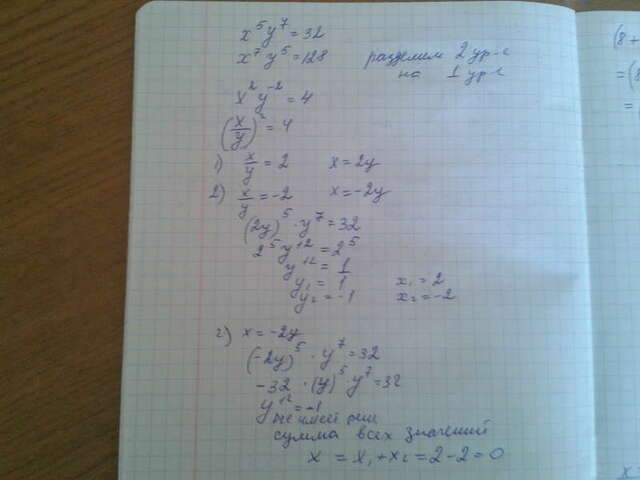 x⁵y⁷=32
x⁷y⁵=128 разделим 2 ур-е
на 1 ур-е
x²y⁻²=4
(x/y)²=4
1) x/y=2 x=2y
2) x/y=-2 x=-2y
(2y)⁵·y⁷=32
2⁵y¹²=2⁵
y¹²=1
y₁=1 x₁=2
y₂=-1 x₂=-2
2) x=-2y
(-2y)⁵·y⁷=32
-32·(y)⁵·y⁷=32
y¹²=-1
не имеет
сумма всех значений
x=x₁+x₂=2-2=0
(8+
=(8
=
x=